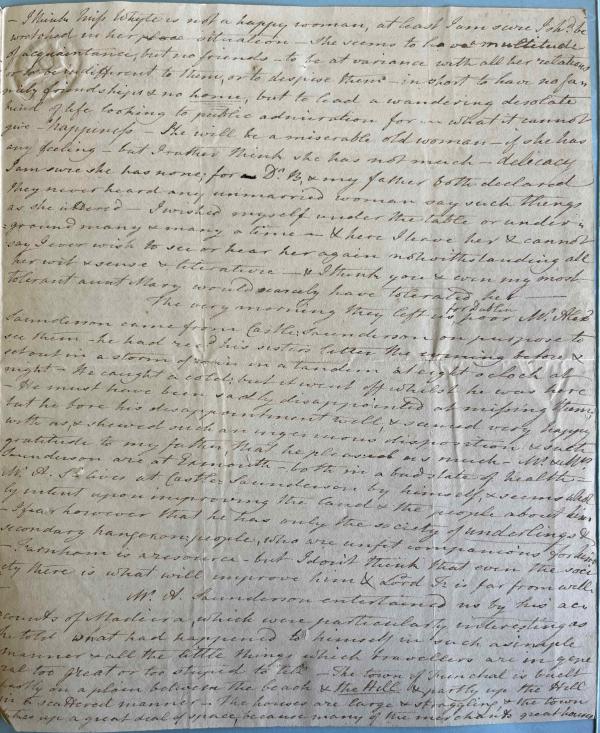 I think Miss Whyte is not a happy woman, at least I am sure I shd. be
wretched in her situation – She seems to have a multitude
of acquaintance, but no friends – to be at variance with all her relations
or to be indifferent to them, or to despise them – in short to have no fa
mily friendships & no home, but to lead a wandering desolate
kind of life looking to public admiration for what it cannot
give – happiness – She will be a miserable old woman – if she has
any feeling – but I rather think she has not much – delicacy
I am sure she has none; for Dr. B. & my father both declared
they never heard any unmarried woman say such things
as she uttered – I wished myself under the table or under-
-ground many & many a time – & here I leave her & cannot
say I ever wish to see or hear her again notwithstanding all
her wit & sense & literature – & I think you & even my most
tolerant aunt Mary would scarcely have tolerated her –
The very morning they left us for Dublin poor Mr. Alexr.
Saunderson came from Castle Saunderson on purpose to
see them – he had read his sisters letter the evening before &
set out in a storm of rain in a tandem at eight o'clock at
night – He caught a cold; but it went off whilst he was here
– He must have been sadly disappointed at missing them,
but he bore his disappointment well, & seemed very happy
with us, & shewed such an ingenuous disposition & such
gratitude to my father that he pleased us much – Mr. & Mrs.
Saunderson are at Exmouth – both in a bad state of health –
Mr. A. S. lives at Castle Saunderson by himself, & seems whol
ly intent upon improving the land & the people about him
I fear however that he has only the society of underlings &
secondary hangeron people, who are unfit companions for him
– Farnham is a resource – but I don't think that even the soci
ety there is what will improve him & Lord F. is far from well –
Mr. A Saunderson entertained us by his ac
counts of Madeira, which were particularly interesting as
he told what had happened to himself in such a simple
manner & all the little things which travellers are in gene
ral too great or too stupid to tell – The town of Funchal is built
partly on a plain between the beach & the Hill & partly up the Hill
in a scattered manner – the houses are large & straggling & the town
takes up a great deal of space, because many of the merchants great houses